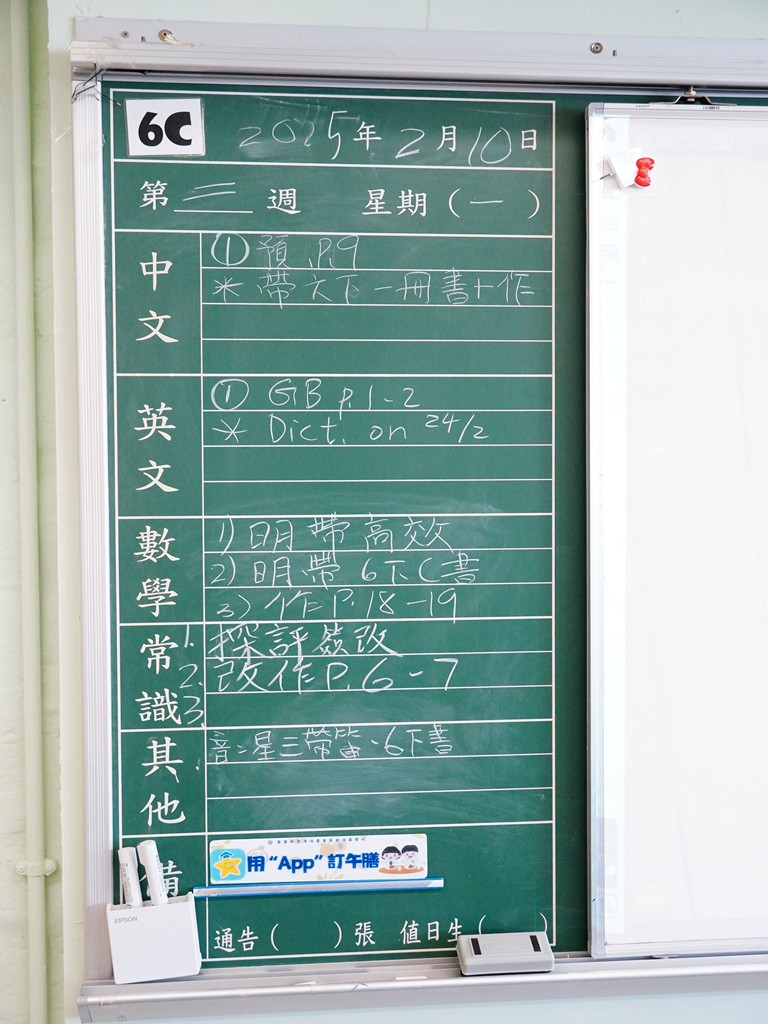 6C 2025年2月10日
第三週 星期(一)
中文
① 預 P.9
* 帶六下一冊書+作
英文
① GB p.1-2
* Dict. on 24/2
數學
1) 明帶高效
2) 明帶6下C書
3) 作P.18-19
常識
1. 探評簽改
2. 改作P.6-7
3.
其他
音:星三帶笛、6下書
備
用"App"訂午膳
EPSON
通告( )張 值日生( )